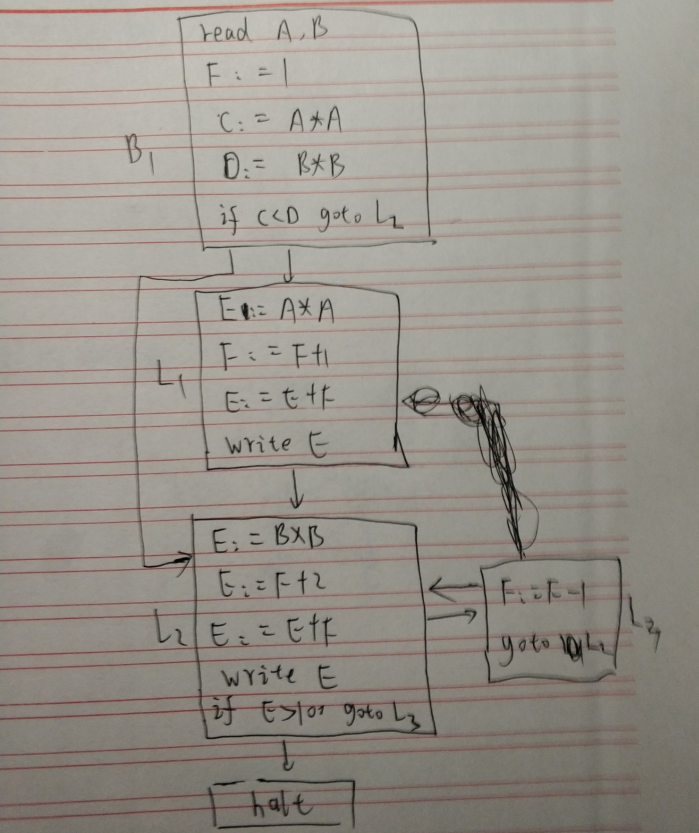 read A, B
F := 1
C := A*A
B1
D := B*B
if C<D goto L2
E := A*A
F := F+1
L1
E := E+F
write E
E := B*B
E := F+2
L2
E := E+F
write E
if E>100 goto L3
F := F-1
L3
goto L2
halt